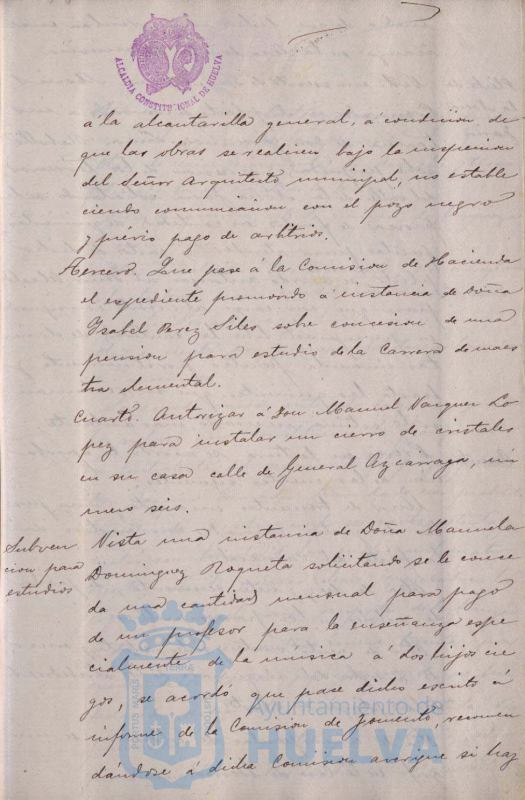 ALCALDIA CONSTITUCIONAL DE HUELVA
á la alcantarilla general, á condicion de
que las obras se realicen bajo la inspeccion
del Señor Arquitecto municipal, no estable
ciendo comunicacion con el pozo negro
y prévio pago de arbitrios.
Tercero. Que pase á la Comision de Hacienda
el expediente promovido á instancia de Doña
Isabel Perez Siles sobre concesion de una
pension para estudio de la Carrera de maes
tra elemental.
Cuarto. Autorizar á Don Manuel Vazquez Lo
pez para instalar un cierro de cristales
en su casa calle de General Azcárraga, nú
mero seis.
Subven
cion para
estudios
Vista una instancia de Doña Manuela
Dominguez Roqueta solicitando se le conce
da una cantidad mensual para pago
de un profesor para la enseñanza espe
cialmente de la música á dos hijos cie
gos, se acordó que pase dicho escrito á
informe de la Comision de Fomento, recomen
dándose á dicha Comision averigüe si hay
Ayuntamiento de
HUELVA